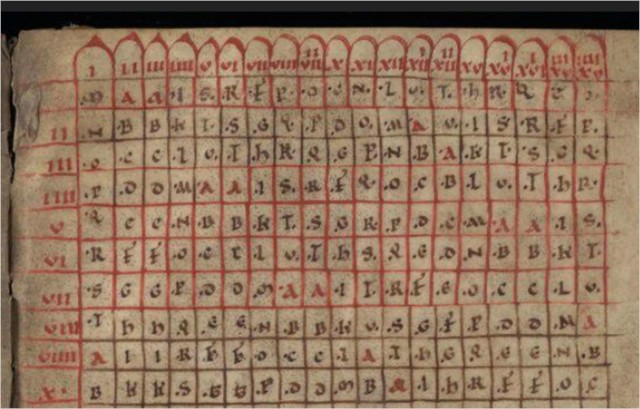 I II III IIII V VI VII VIII VIIII X XI XII XIII XIIII XV XVI XVII XVIII XVIIII
M A A I S R F P O C N L U T h R Q E O
II N B B K T S G Q P D O M A U I S R F P
III O C C L U T h R Q E P N B A K T S G Q
IIII P D D M A A I S R F Q O C B L U T h R
V Q E E N B B K T S G R P D C M A A I S
VI R F F O C C L U T h S Q E D N B B K T
VII S G G P D D M A A I T R F E O C C L U
VIII T h h Q E E N B B K U S G F P D D M A
VIIII A I I R F F O C C L A T h G Q E E N B
X B K K S G G P D D M B A I h R F F O C